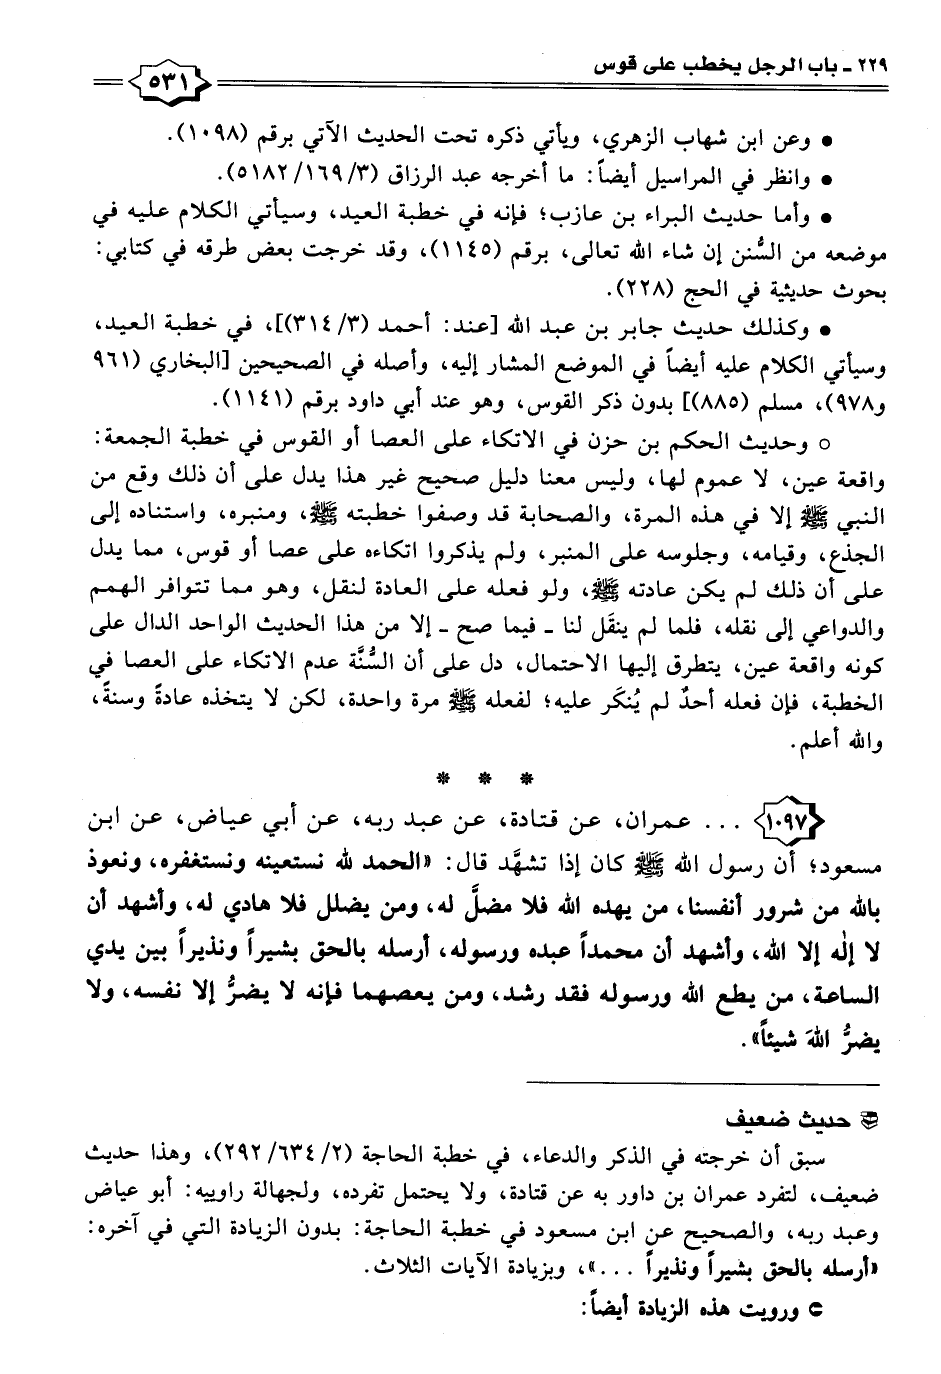 ٢٢٩ - باب الرجل يخطب على قوس
٥٣١
• وعن ابن شهاب الزهري، ويأتي ذكره تحت الحديث الآتي برقم (١٠٩٨).
• وانظر في المراسيل أيضاً: ما أخرجه عبد الرزاق (٣/١٦٩/٥١٨٢).
• وأما حديث البراء بن عازب؛ فإنه في خطبة العيد، وسيأتي الكلام عليه في
موضعه من السُّنن إن شاء الله تعالى، برقم (١١٤٥)، وقد خرجت بعض طرقه في كتابي:
بحوث حديثية في الحج (٢٢٨).
• وكذلك حديث جابر بن عبد الله [عند: أحمد (٣/٣١٤)]، في خطبة العيد،
وسيأتي الكلام عليه أيضاً في الموضع المشار إليه، وأصله في الصحيحين [البخاري (٩٦١
و٩٧٨)، مسلم (٨٨٥)] بدون ذكر القوس، وهو عند أبي داود برقم (١١٤١).
○ وحديث الحكم بن حزن في الاتكاء على العصا أو القوس في خطبة الجمعة:
واقعة عين، لا عموم لها، وليس معنا دليل صحيح غير هذا يدل على أن ذلك وقع من
النبي ﷺ إلا في هذه المرة، والصحابة قد وصفوا خطبته ﷺ، ومنبره، واستناده إلى
الجذع، وقيامه، وجلوسه على المنبر، ولم يذكروا اتكاءه على عصا أو قوس، مما يدل
على أن ذلك لم يكن عادته ﷺ، ولو فعله على العادة لنقل، وهو مما تتوافر الهمم
والدواعي إلى نقله، فلما لم ينقَل لنا - فيما صح - إلا من هذا الحديث الواحد الدال على
كونه واقعة عين، يتطرق إليها الاحتمال، دل على أن السُّنَّة عدم الاتكاء على العصا في
الخطبة، فإن فعله أحدٌ لم يُنكَر عليه؛ لفعله ﷺ مرة واحدة، لكن لا يتخذه عادةً وسنةً،
والله أعلم.
* * *
١٠٩٧ ... عمران، عن قتادة، عن عبد ربه، عن أبي عياض، عن ابن
مسعود؛ أن رسول الله ﷺ كان إذا تشهَّد قال: «الحمد لله نستعينه ونستغفره، ونعوذ
بالله من شرور أنفسنا، من يهده الله فلا مضلَّ له، ومن يضلل فلا هادي له، وأشهد أن
لا إلٰه إلا الله، وأشهد أن محمداً عبده ورسوله، أرسله بالحق بشيراً ونذيراً بين يدي
الساعة، من يطع الله ورسوله فقد رشد، ومن يعصهما فإنه لا يضرُّ إلا نفسه، ولا
يضرُّ اللهَ شيئاً».
حديث ضعيف
سبق أن خرجته في الذكر والدعاء، في خطبة الحاجة (٢/٦٣٤/٢٩٢)، وهذا حديث
ضعيف، لتفرد عمران بن داور به عن قتادة، ولا يحتمل تفرده، ولجهالة راوييه: أبو عياض
وعبد ربه، والصحيح عن ابن مسعود في خطبة الحاجة: بدون الزيادة التي في آخره:
«أرسله بالحق بشيراً ونذيراً ...»، وبزيادة الآيات الثلاث.
ورويت هذه الزيادة أيضاً: